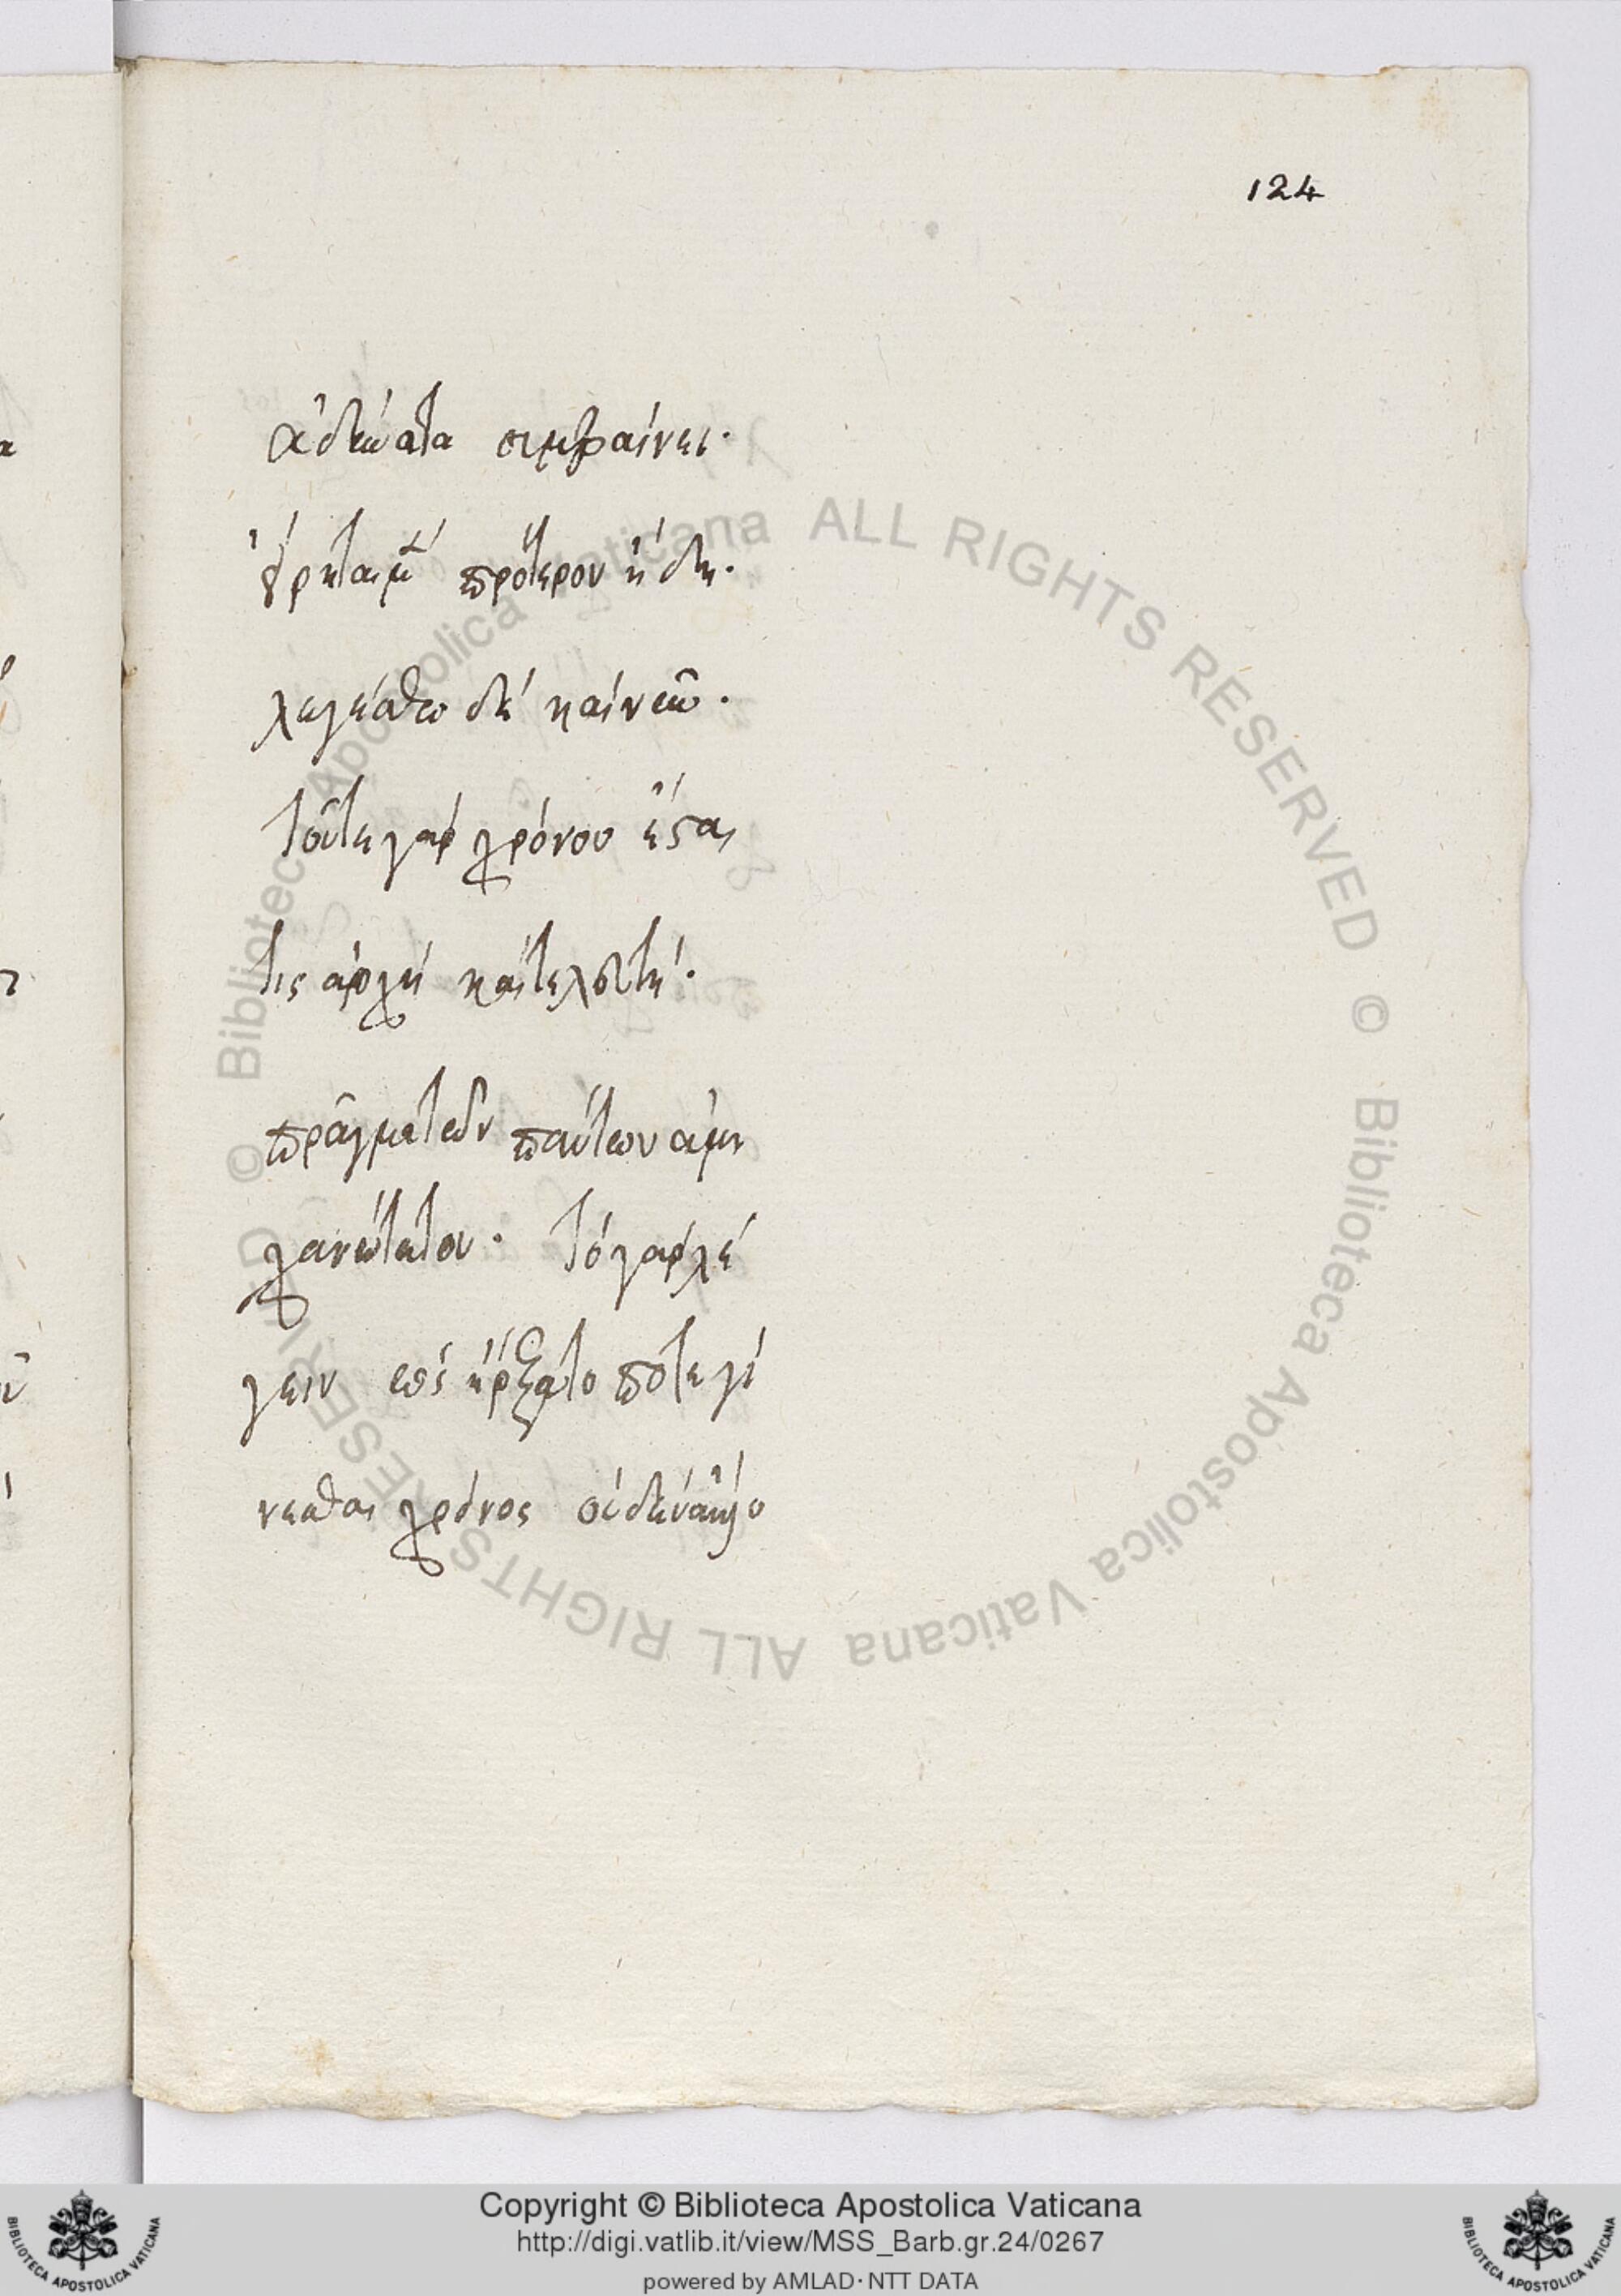 124
ἀδύνατα συμβαίνει.
εἴρηται μὲν πρότερον ἤδη.
λεγέσθω δὲ καὶ νῦν.
τοῦτε γὰρ χρόνου ἔσαι
τις ἀρχὴ καὶ τελευτή.
πραγμάτων πάντων ἀμη
χανώτατον. τὸ γὰρ λέ
γειν ὡς ἤρξατο ποτε γί
νεσθαι χρόνος οὐδὲν
Copyright © Biblioteca Apostolica Vaticana
http://digi.vatlib.it/view/MSS_Barb.gr.24/0267
powered by AMLAD·NTT DATA
© Biblioteca Apostolica Vaticana ALL RIGHTS RESERVED © Biblioteca Apostolica Vaticana ALL RIGHTS RESERVED
BIBLIOTECA APOSTOLICA VATICANA
BIBLIOTECA APOSTOLICA VATICANA